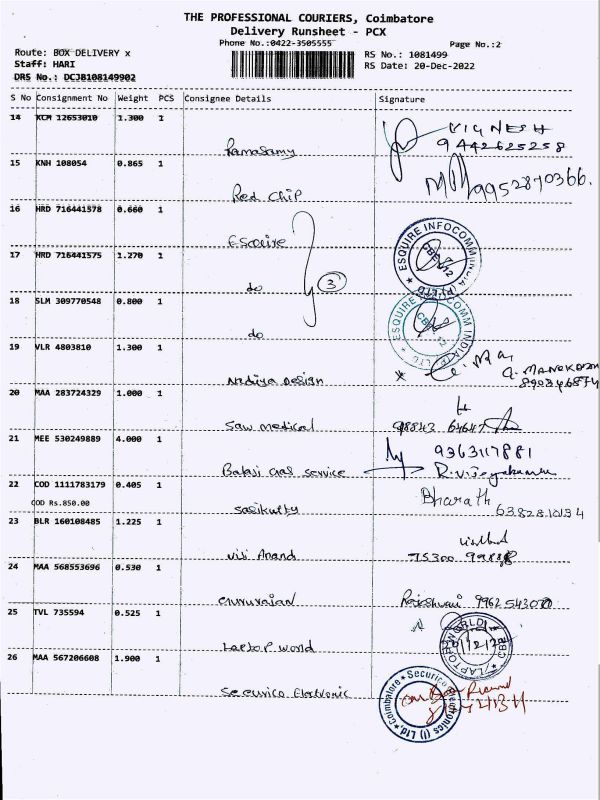 THE PROFESSIONAL COURIERS, Coimbatore
Delivery Runsheet - PCX
Phone No.:0422-3505555
Page No.:2
Route: BOX DELIVERY x
RS No.: 1081499
Staff: HARI
RS Date: 20-Dec-2022
DRS No.: DCJB108149902
S No Consignment No Weight PCS Consignee Details Signature
14 KCM 12653010 1.300 1
VIGNESH
9442625258
Ramasamy
15 KNH 108054 0.865 1
9952870366.
Red Chip
16 HRD 716441578 0.660 1
Esquire
ESQUIRE INFOCOMM INDIA (P) LTD
17 HRD 716441575 1.270 1
do
3
18 SLM 309770548 0.800 1
do
ESQUIRE INFOCOMM INDIA (P) LTD
19 VLR 4803810 1.300 1
Nadiya Design
20 MAA 283724329 1.000 1
Saw medical
98843 64647
21 MEE 530249889 4.000 1
9363117881
Balasi Gas Service
22 COD 1111783179 0.405 1
COD Rs.850.00
Bharath
6382810134
Sasikutty
23 BLR 160108485 1.225 1
Viji Anand
75300
24 MAA 568553696 0.530 1
Gururajan
25 TVL 735594 0.525 1
Laptop world
LAPTOP WORLD
CBE
26 MAA 567206608 1.900 1
Securico Electronic
Securico Electronics (I) Ltd, Coimbatore